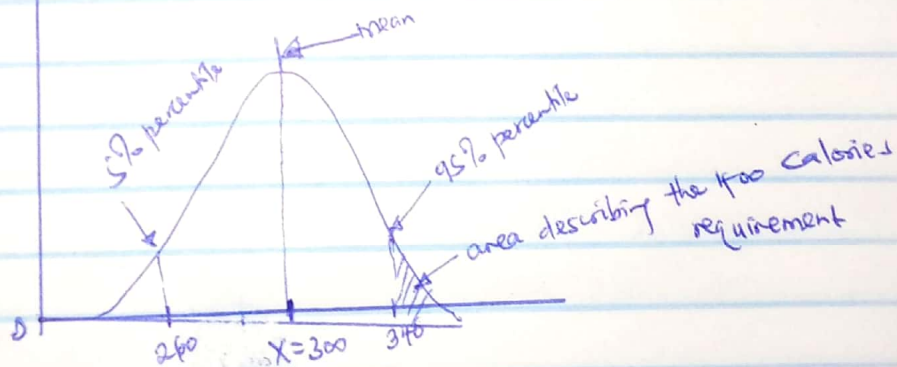 mean
5% percentile
95% percentile
area describing the 400 Calories
requirement
0
260
X=300
340